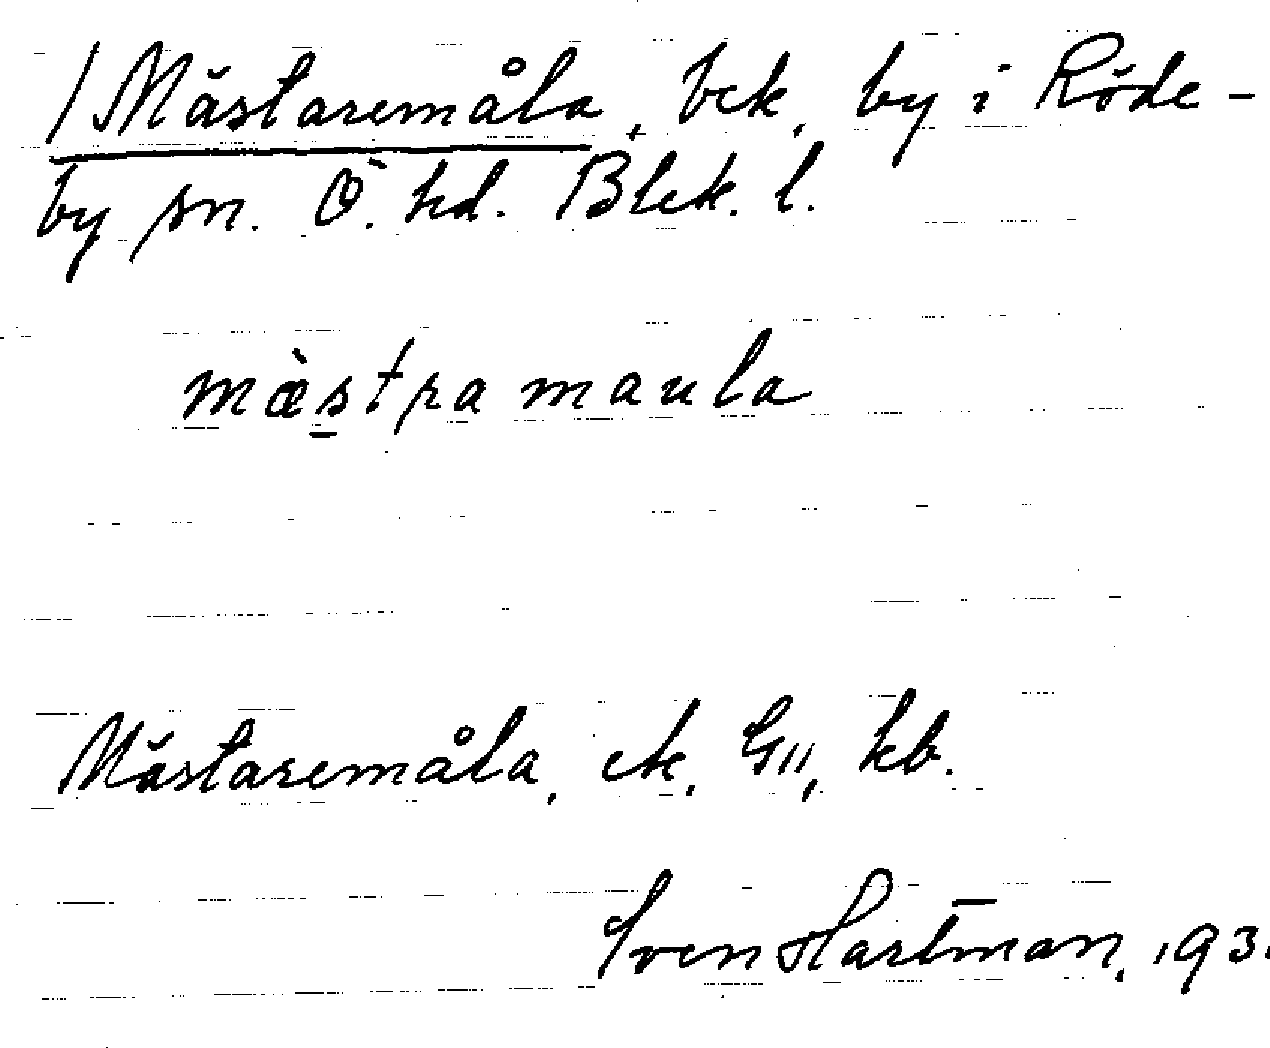 /Mästaremåla, bek, by i Röde-
by sn. Ö. hd. Blek. l.
mæ̀stramaula
Mästaremåla, ek. GII, kb.
Sven Hartman, 193